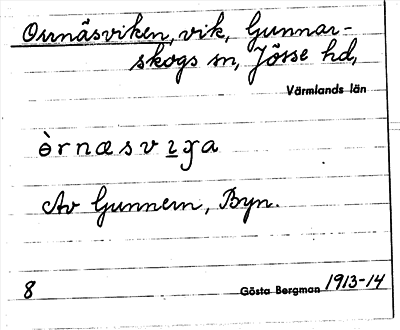 Ornäsviken, vik, Gunnar-
skogs sn, Jösse hd,
Värmlands län
ὲrnæsvıga
Av Gunnern, Byn.
8 Gösta Bergman 1913-14